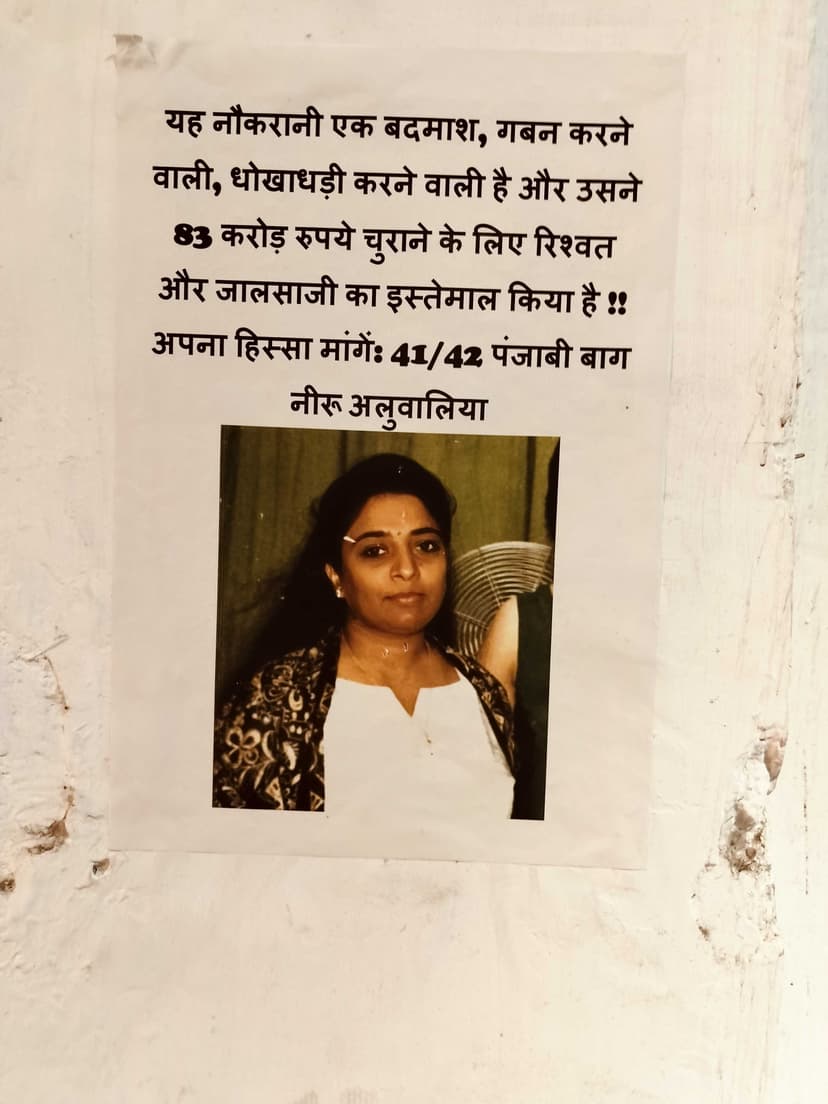 यह नौकरानी एक बदमाश, गबन करने
वाली, धोखाधड़ी करने वाली है और उसने
83 करोड़ रुपये चुराने के लिए रिश्वत
और जालसाजी का इस्तेमाल किया है !!
अपना हिस्सा मांगें: 41/42 पंजाबी बाग
नीरू अलुवालिया